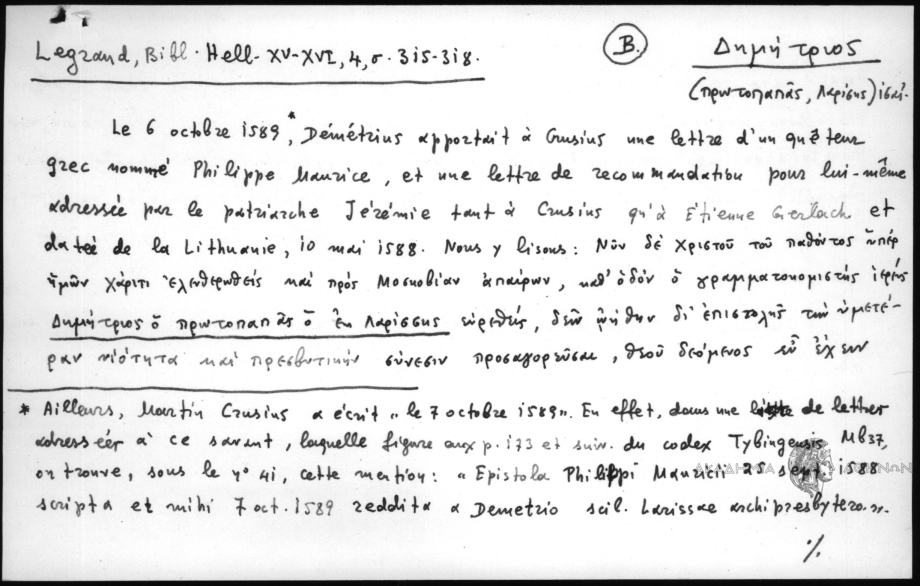 Legrand, Bibl. Hell. XV-XVI, 4, σ. 315-318.
B.
Δημήτριος
(πρωτοπαπᾶς, Λαρίσης)
Le 6 octobre 1589,* Démétrius apportait à Crusius une lettre d'un quêteur
grec nommé Philippe Maurice, et une lettre de recommandation pour lui-même
adressée par le patriarche Jérémie tant à Crusius qu'à Étienne Gerlach et
datée de la Lithuanie, 10 mai 1588. Nous y lisons: Νῦν δὲ Χριστοῦ τοῦ παθόντος ὑπὲρ
ἡμῶν χάριτι ἐλευθερωθείς καί πρός Μοσκοβίαν ἀπαίρων, καθ' ὁδόν ὁ γραμματοκομιστής ἱερεύς
Δημήτριος ὁ πρωτοπαπᾶς ὁ ἐκ Λαρίσσης εὑρεθείς, δεῖν ᾠήθην δι' ἐπιστολῆς τήν ὑμετέ-
ραν νιότητα καί πρεσβυτικήν σύνεσιν προσαγορεῦσαι, θεοῦ δεόμενος εὖ ἔχειν
* Ailleurs, Martin Crusius a écrit „le 7 octobre 1589". En effet, dans une de lettres
adressées à ce savant, laquelle figure aux p. 173 et suiv. du codex Tybingensis Mb37,
on trouve, sous le nº 41, cette mention: „Epistola Philippi Mauricii 25 sept. 1588
scripta et mihi 7 oct. 1589 reddita a Demetrio scil. Larissae archipresbytero.".
%